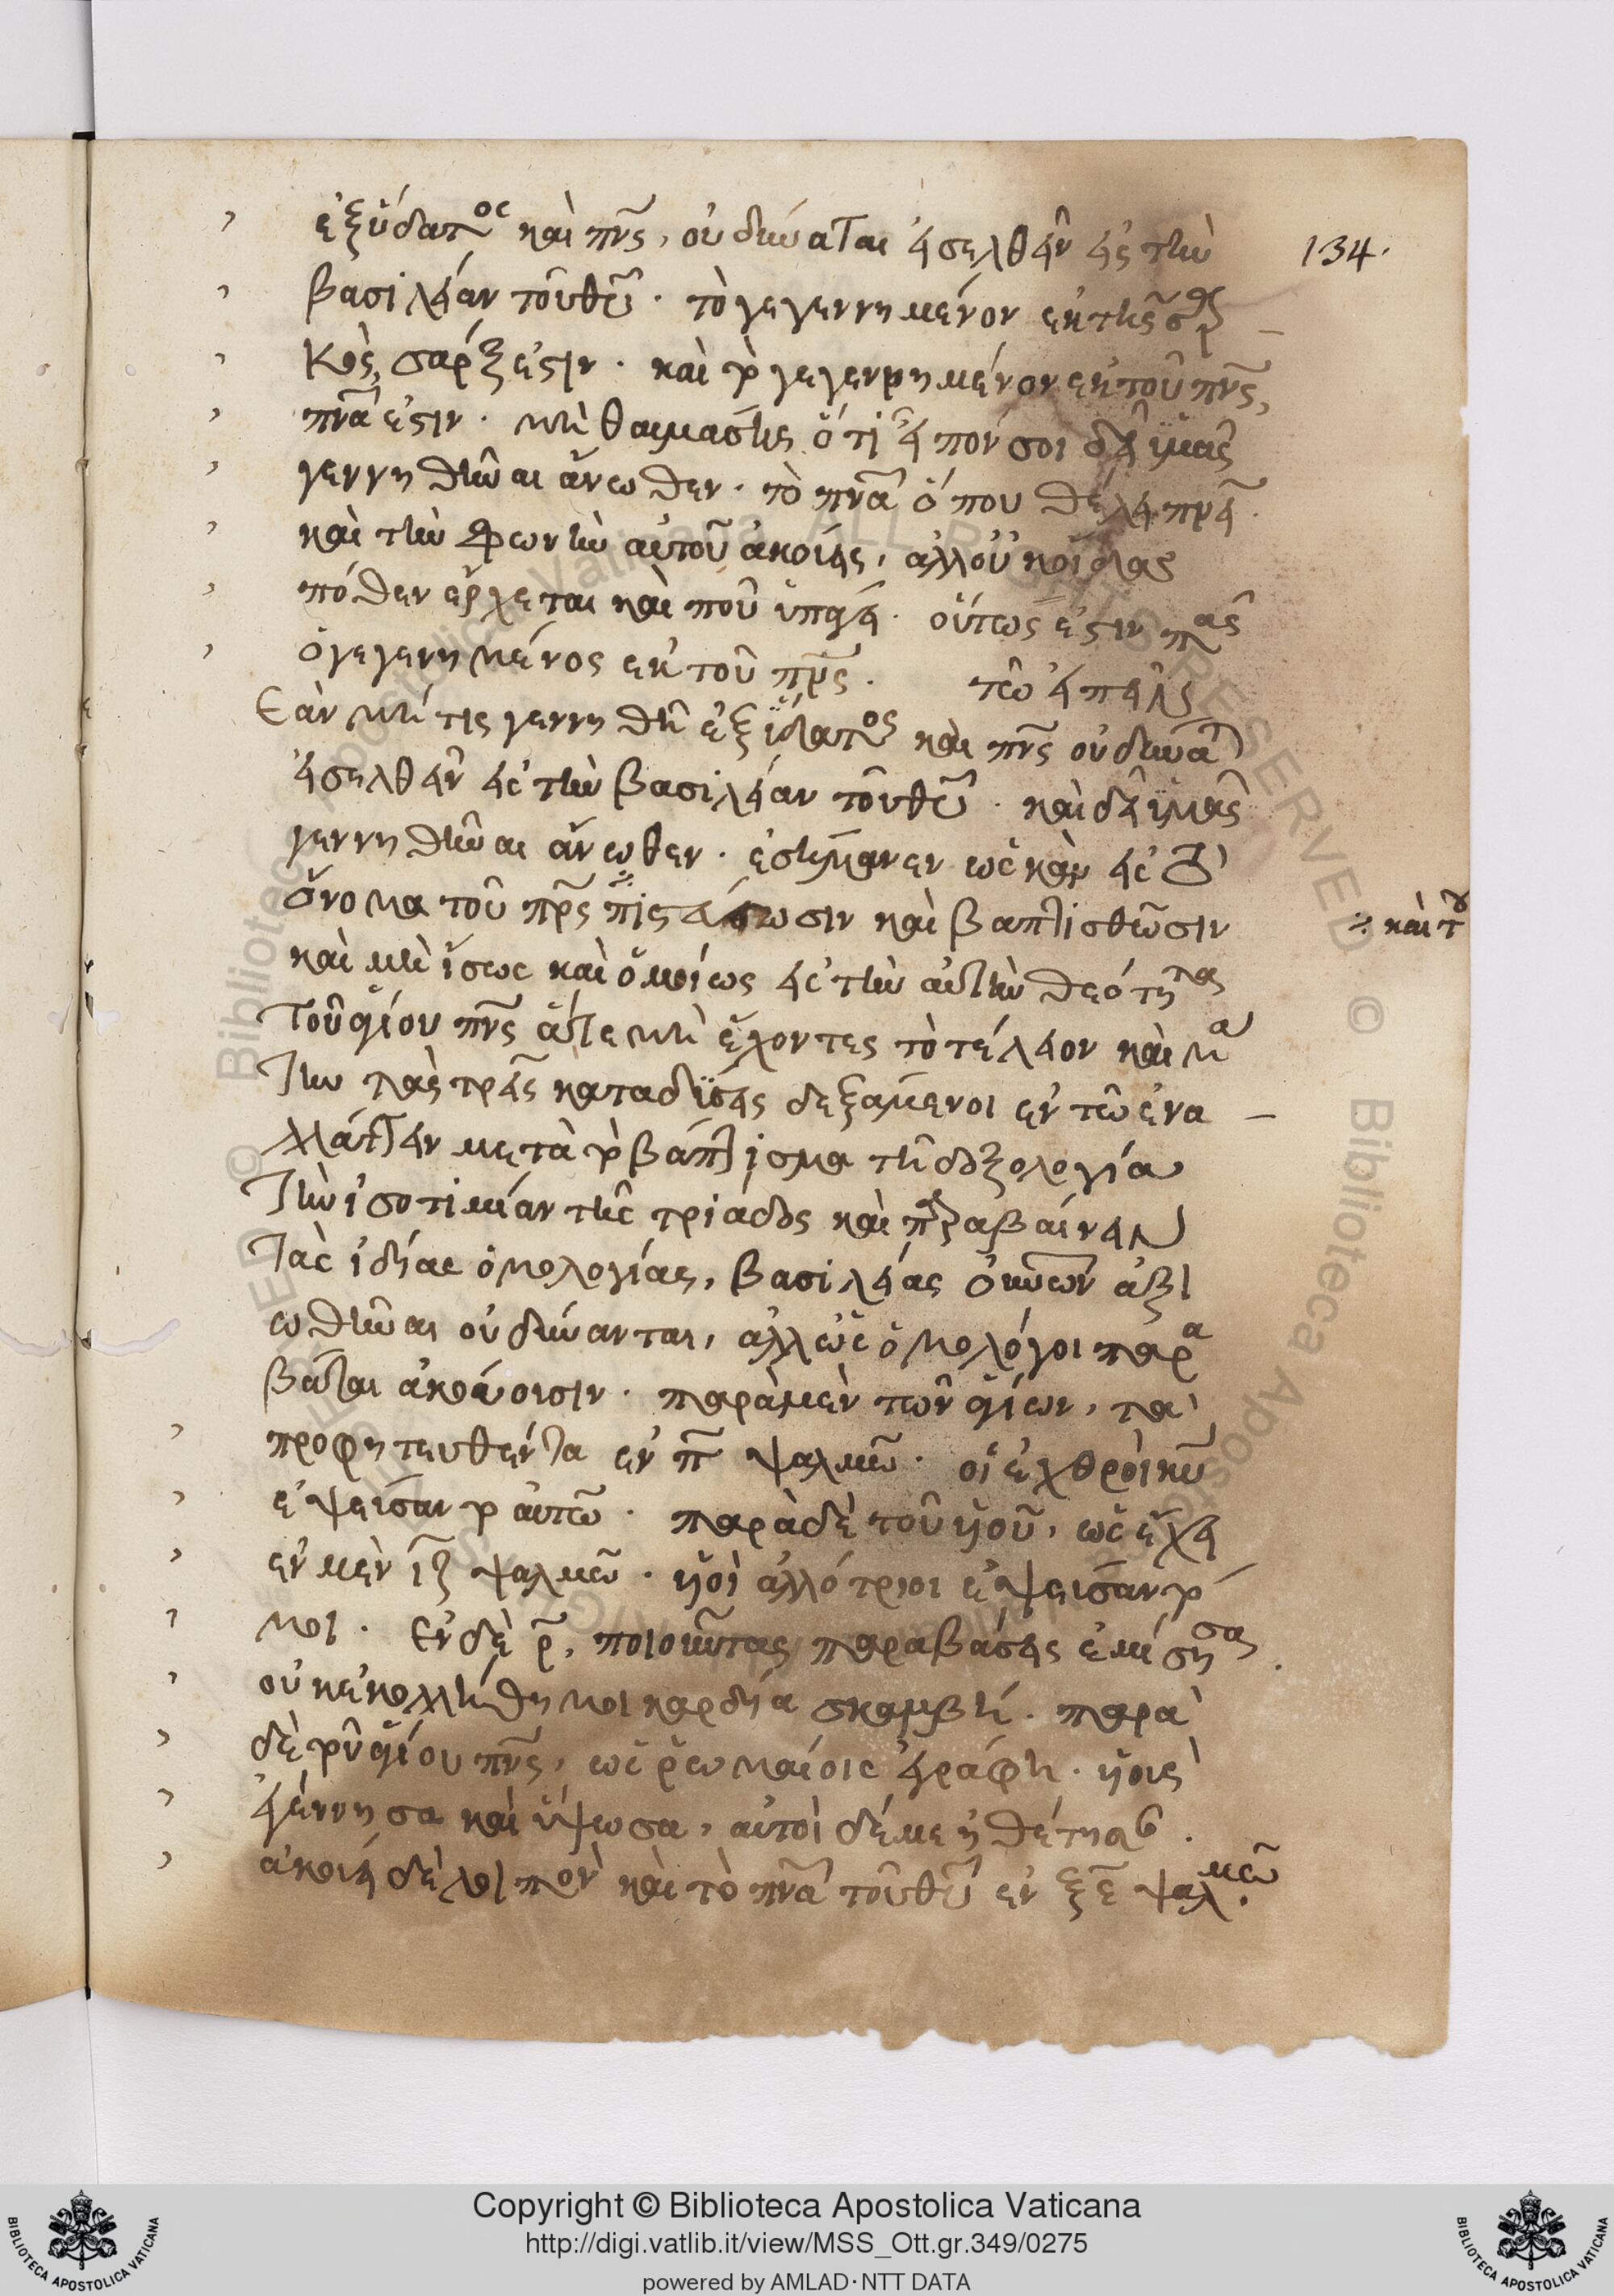 ἐξ ὕδατος καὶ πνς, οὐ δύναται εἰσελθεῖν εἰς τὴν
134.
βασιλείαν τοῦ θυ. τὸ γεγεννημένον ἐκ τῆς σαρ
κὸς, σάρξ ἐστιν. καὶ τὸ γεγεννημένον ἐκ τοῦ πνς,
πνα ἐστιν. μὴ θαυμάσης ὅτι εἶπόν σοι δεῖ ὑμᾶς
γεννηθῆναι ἄνωθεν. τὸ πνα ὅπου θέλει πνεῖ.
καὶ τὴν φωνὴν αὐτοῦ ἀκούεις, ἀλλ' οὐκ οἶδας
πόθεν ἔρχεται καὶ ποῦ ὑπάγει. οὕτως ἐστιν πᾶς
ὁ γεγενημένος ἐκ τοῦ πνς. τῶ εἰπεῖν
Ἐὰν μή τις γεννηθῆ ἐξ ὕδατος καὶ πνς οὐ δύναται
εἰσελθεῖν εἰς τὴν βασιλείαν τοῦ θυ. καὶ δεῖ ὑμᾶς
γεννηθῆναι ἄνωθεν. ἐσήμανεν ὡς κἂν εἰς τὸ
ὄνομα τοῦ πρς πιστεύσωσιν καὶ βαπτισθῶσιν
καὶ τοῦ
καὶ μὴ ἴσως καὶ ὁμοίως εἰς τὴν αὐτὴν θεότητα
τοῦ ἁγίου πνς ἅτε μὴ ἔχοντες τὸ τέλειον καὶ μα
την τὰς τρεῖς καταδύσεις δεξάμενοι ἐν τῶ ἐνα
λλάττειν μετὰ τὸ βάπτισμα τῆ δοξολογία
τὴν ἰσοτιμίαν τῆς τριάδος καὶ παραβαίνειν
τὰς ἰδίας ὁμολογίας, βασιλείας οὐνων ἀξι
ωθῆναι οὐ δύνανται, ἀλλ' ὡς ὁμολόγοι παρα
βάται ἀκούουσιν. παρὰ μὲν τῶν ἁγίων, τὰ
προφητευθέντα ἐν π ψαλμῶ. οἱ ἐχθροὶ κυ
ἐψεύσαντο αὐτῶ. παρὰ δὲ τοῦ υἱοῦ, ὡς ἔχει
ἐν μὲν ιζ ψαλμῶ. υἱοὶ ἀλλότριοι ἐψεύσαντό
μοι. Ἐν δὲ ρ, ποιοῦντας παραβάσεις ἐμίσησα.
οὐκ ἐκολλήθη μοι καρδία σκαμβή. παρὰ
δὲ τοῦ ἁγίου πνς, ὡς ῥωμαίοις ἐγράφη. υἱοὺς
ἐγέννησα καὶ ὕψωσα, αὐτοὶ δέ με ἠθέτησαν.
ἀκούει δὲ λοιπὸν καὶ τὸ πνα τοῦ θυ ἐν ξε ψαλμῶ.
Copyright © Biblioteca Apostolica Vaticana
http://digi.vatlib.it/view/MSS_Ott.gr.349/0275
powered by AMLAD·NTT DATA